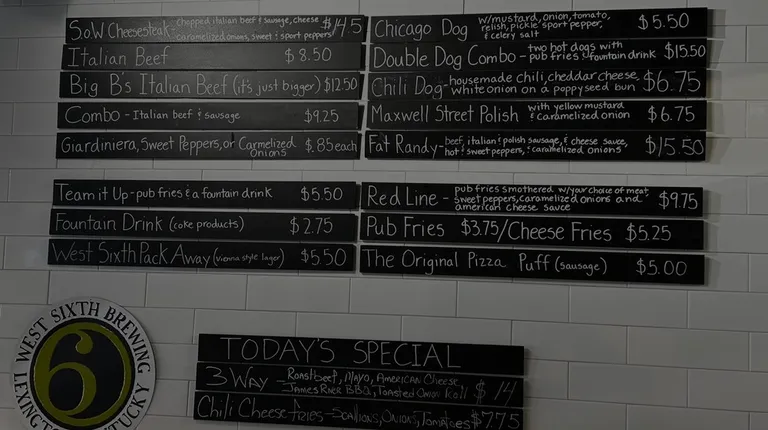 S.o.W Cheesesteak - chopped italian beef & sausage, cheese
caramelized onions, sweet & sport peppers $14.5
Italian Beef $8.50
Big B's Italian Beef (it's just bigger) $12.50
Combo - Italian beef & sausage $9.25
Giardiniera, Sweet Peppers, or Carmelized
Onions $.85 each
Chicago Dog w/mustard, onion, tomato,
relish, pickle sport pepper,
& celery salt $5.50
Double Dog Combo - two hot dogs with
pub fries & fountain drink $15.50
Chili Dog - housemade chili, cheddar cheese,
white onion on a poppyseed bun $6.75
Maxwell Street Polish with yellow mustard
& caramelized onion $6.75
Fat Randy - beef, italian & polish sausage, & cheese sauce,
hot & sweet peppers, & caramelized onions $15.50
Team it Up - pub fries & a fountain drink $5.50
Fountain Drink (coke products) $2.75
West Sixth Pack Away (vienna style lager) $5.50
Red Line - pub fries smothered w/your choice of meat,
sweet peppers, caramelized onions and
american cheese sauce $9.75
Pub Fries $3.75/Cheese Fries $5.25
The Original Pizza Puff (sausage) $5.00
WEST SIXTH BREWING
6
LEXINGTON KENTUCKY
TODAY'S SPECIAL
3 Way - Roast beef, Mayo, American Cheese
James River BBQ, Toasted Onion Roll $14
Chili Cheese Fries - Scallions, Onions, Tomatoes $7.75